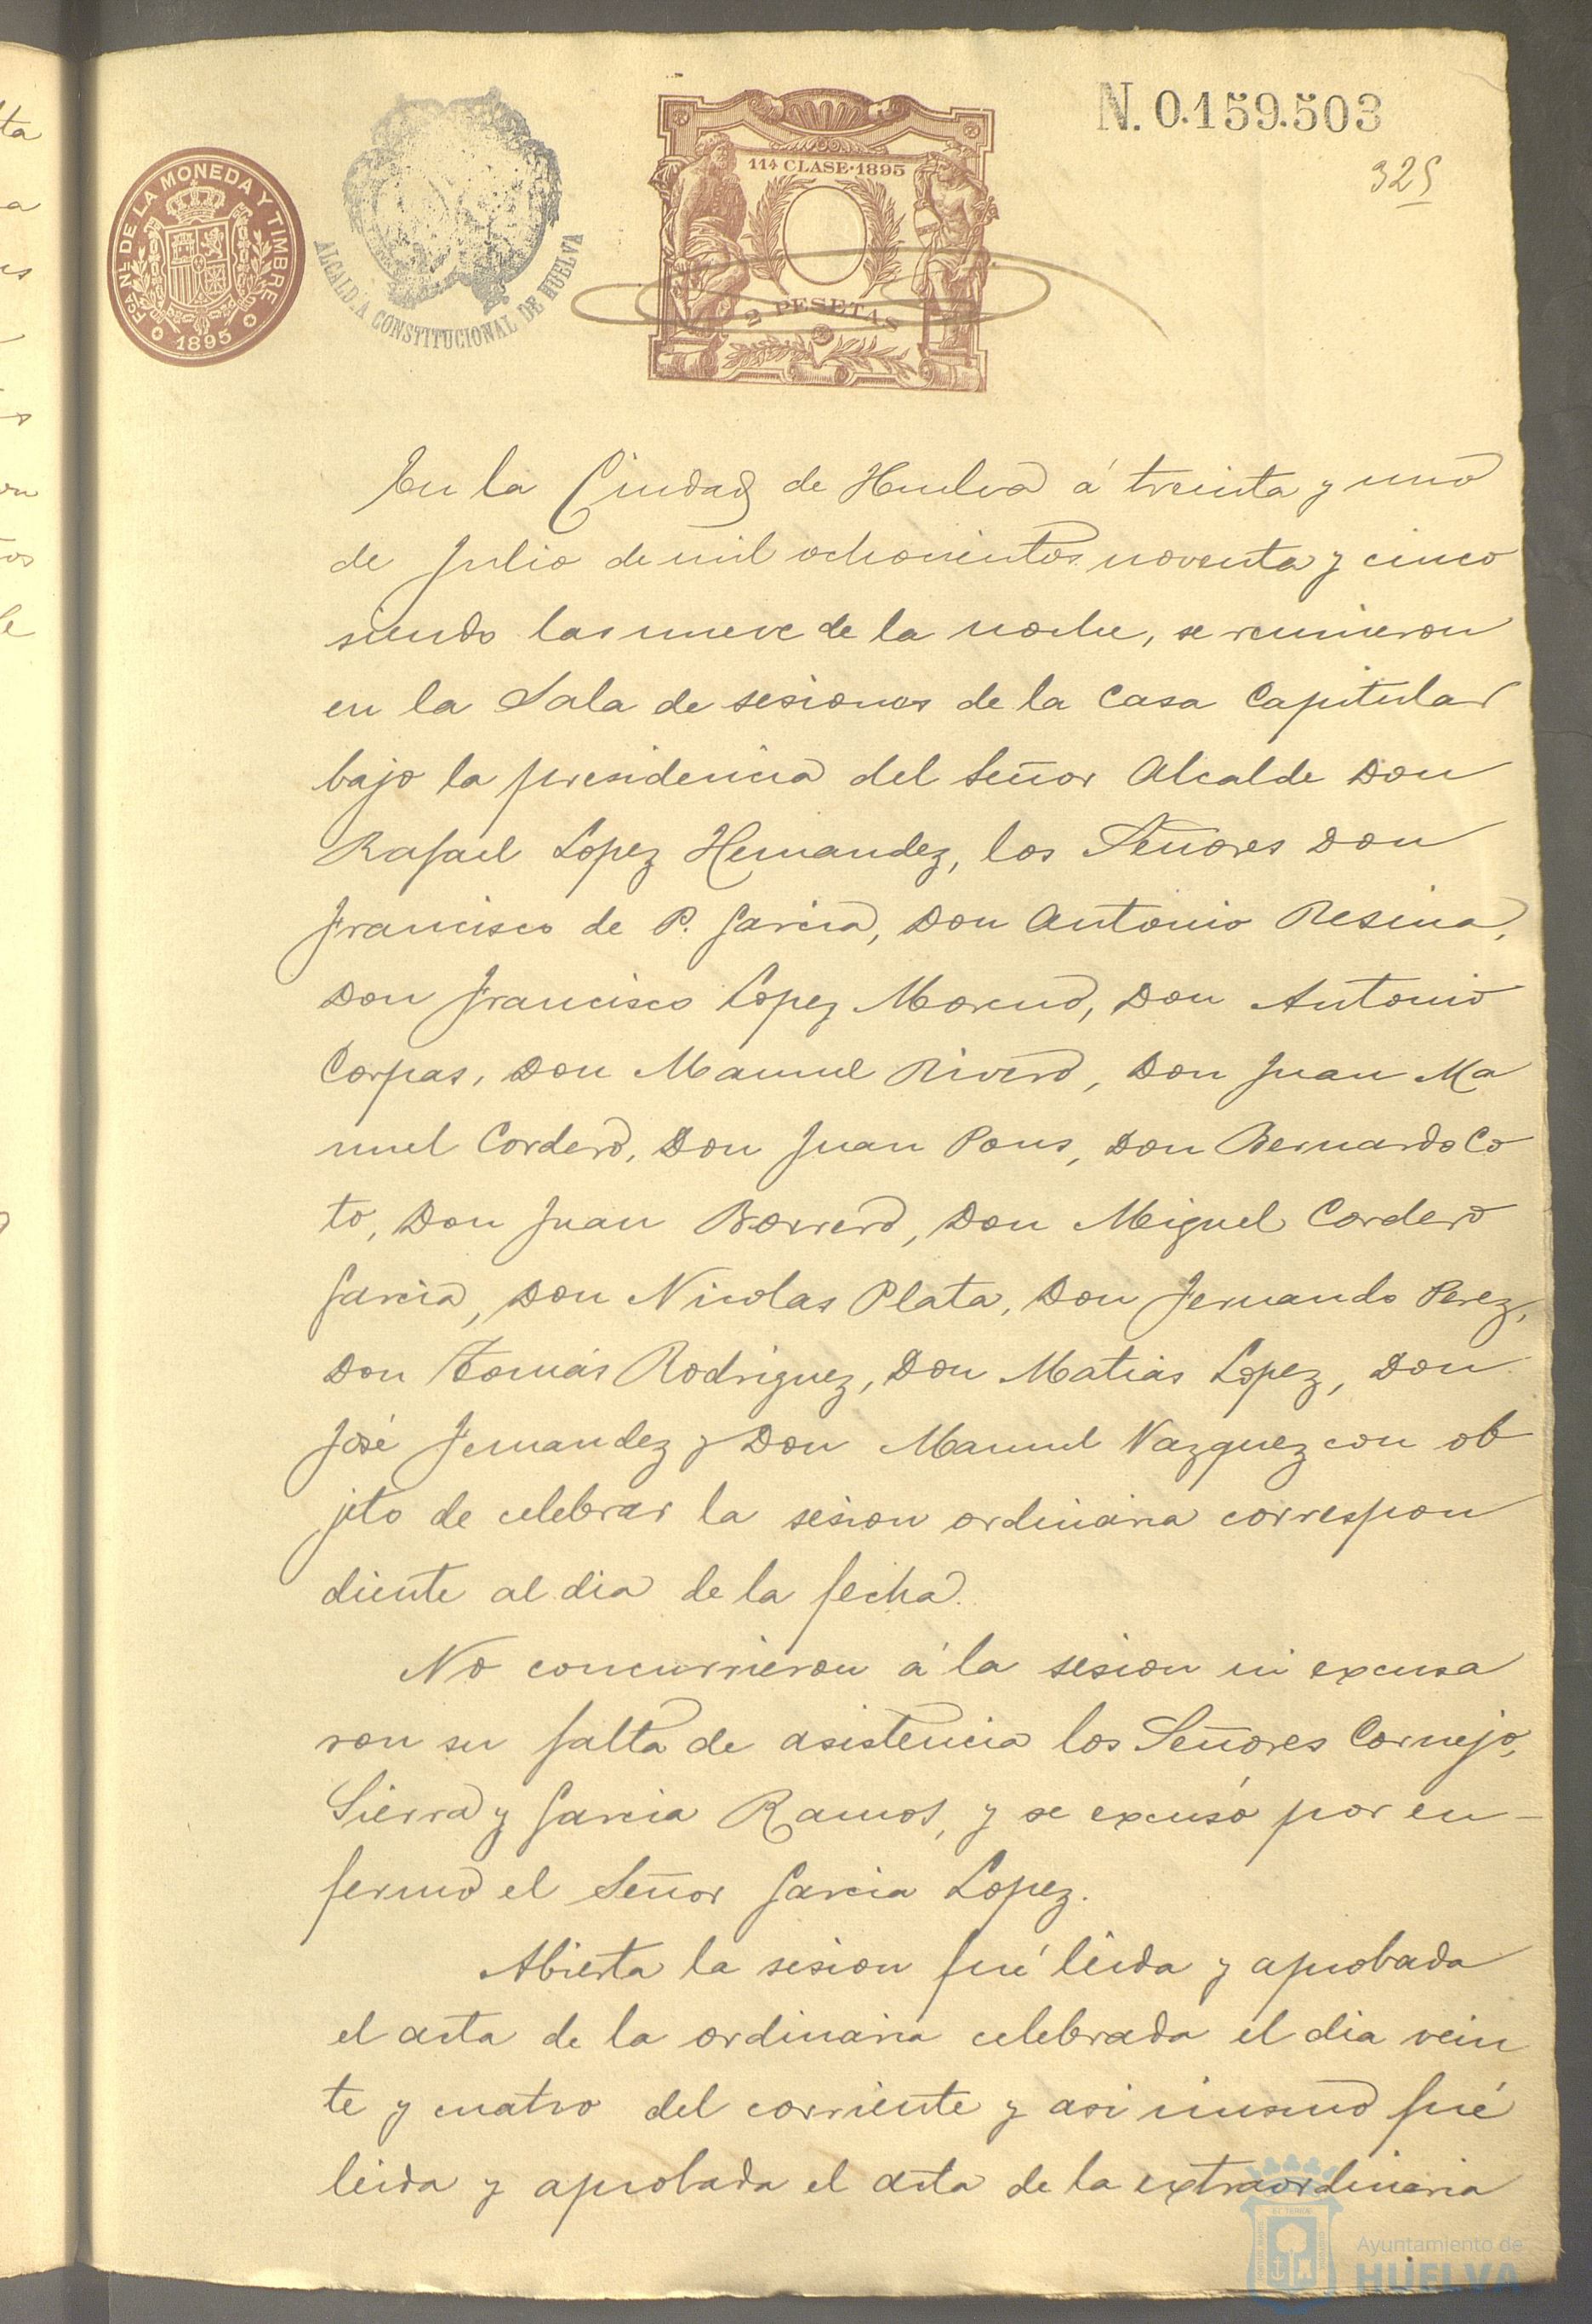 N. 0.159.503
325
FCA. NL. DE LA MONEDA Y TIMBRE
1895
ALCALDÍA CONSTITUCIONAL DE HUELVA
11ª CLASE·1895
2 PESETAS
En la Ciudad de Huelva á treinta y uno
de Julio de mil ochocientos noventa y cinco
siendo las nueve de la noche, se reunieron
en la Sala de sesiones de la Casa Capitular
bajo la presidencia del Señor Alcalde Don
Rafael Lopez Hernandez, los Señores Don
Francisco de P. Garcia, Don Antonio Resina,
Don Francisco Lopez Moreno, Don Antonio
Corpas, Don Manuel Rivero, Don Juan Ma
nuel Cordero, Don Juan Pons, Don Bernardo Co
to, Don Juan Borrero, Don Miguel Cordero
Garcia, Don Nicolas Plata, Don Fernando Perez,
Don Tomás Rodriguez, Don Matias Lopez, Don
José Fernandez y Don Manuel Vazquez con ob
jeto de celebrar la sesion ordinaria correspon
diente al dia de la fecha.
No concurrieron á la sesion ni excusa
ron su falta de asistencia los Señores Cornejo,
Sierra y Garcia Ramos, y se excusó por en-
fermo el Señor Garcia Lopez.
Abierta la sesion fué leida y aprobada
el acta de la ordinaria celebrada el dia vein
te y cuatro del corriente y asi mismo fué
leida y aprobada el acta de la extraordinaria
Ayuntamiento de
HUELVA